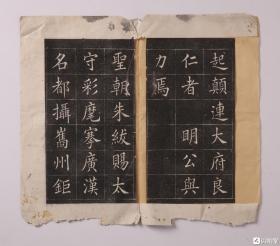 起顛連大府良
仁者明公與
力焉
聖朝朱紱賜太
守彩麾搴廣漢
名都攝嵩州鉅